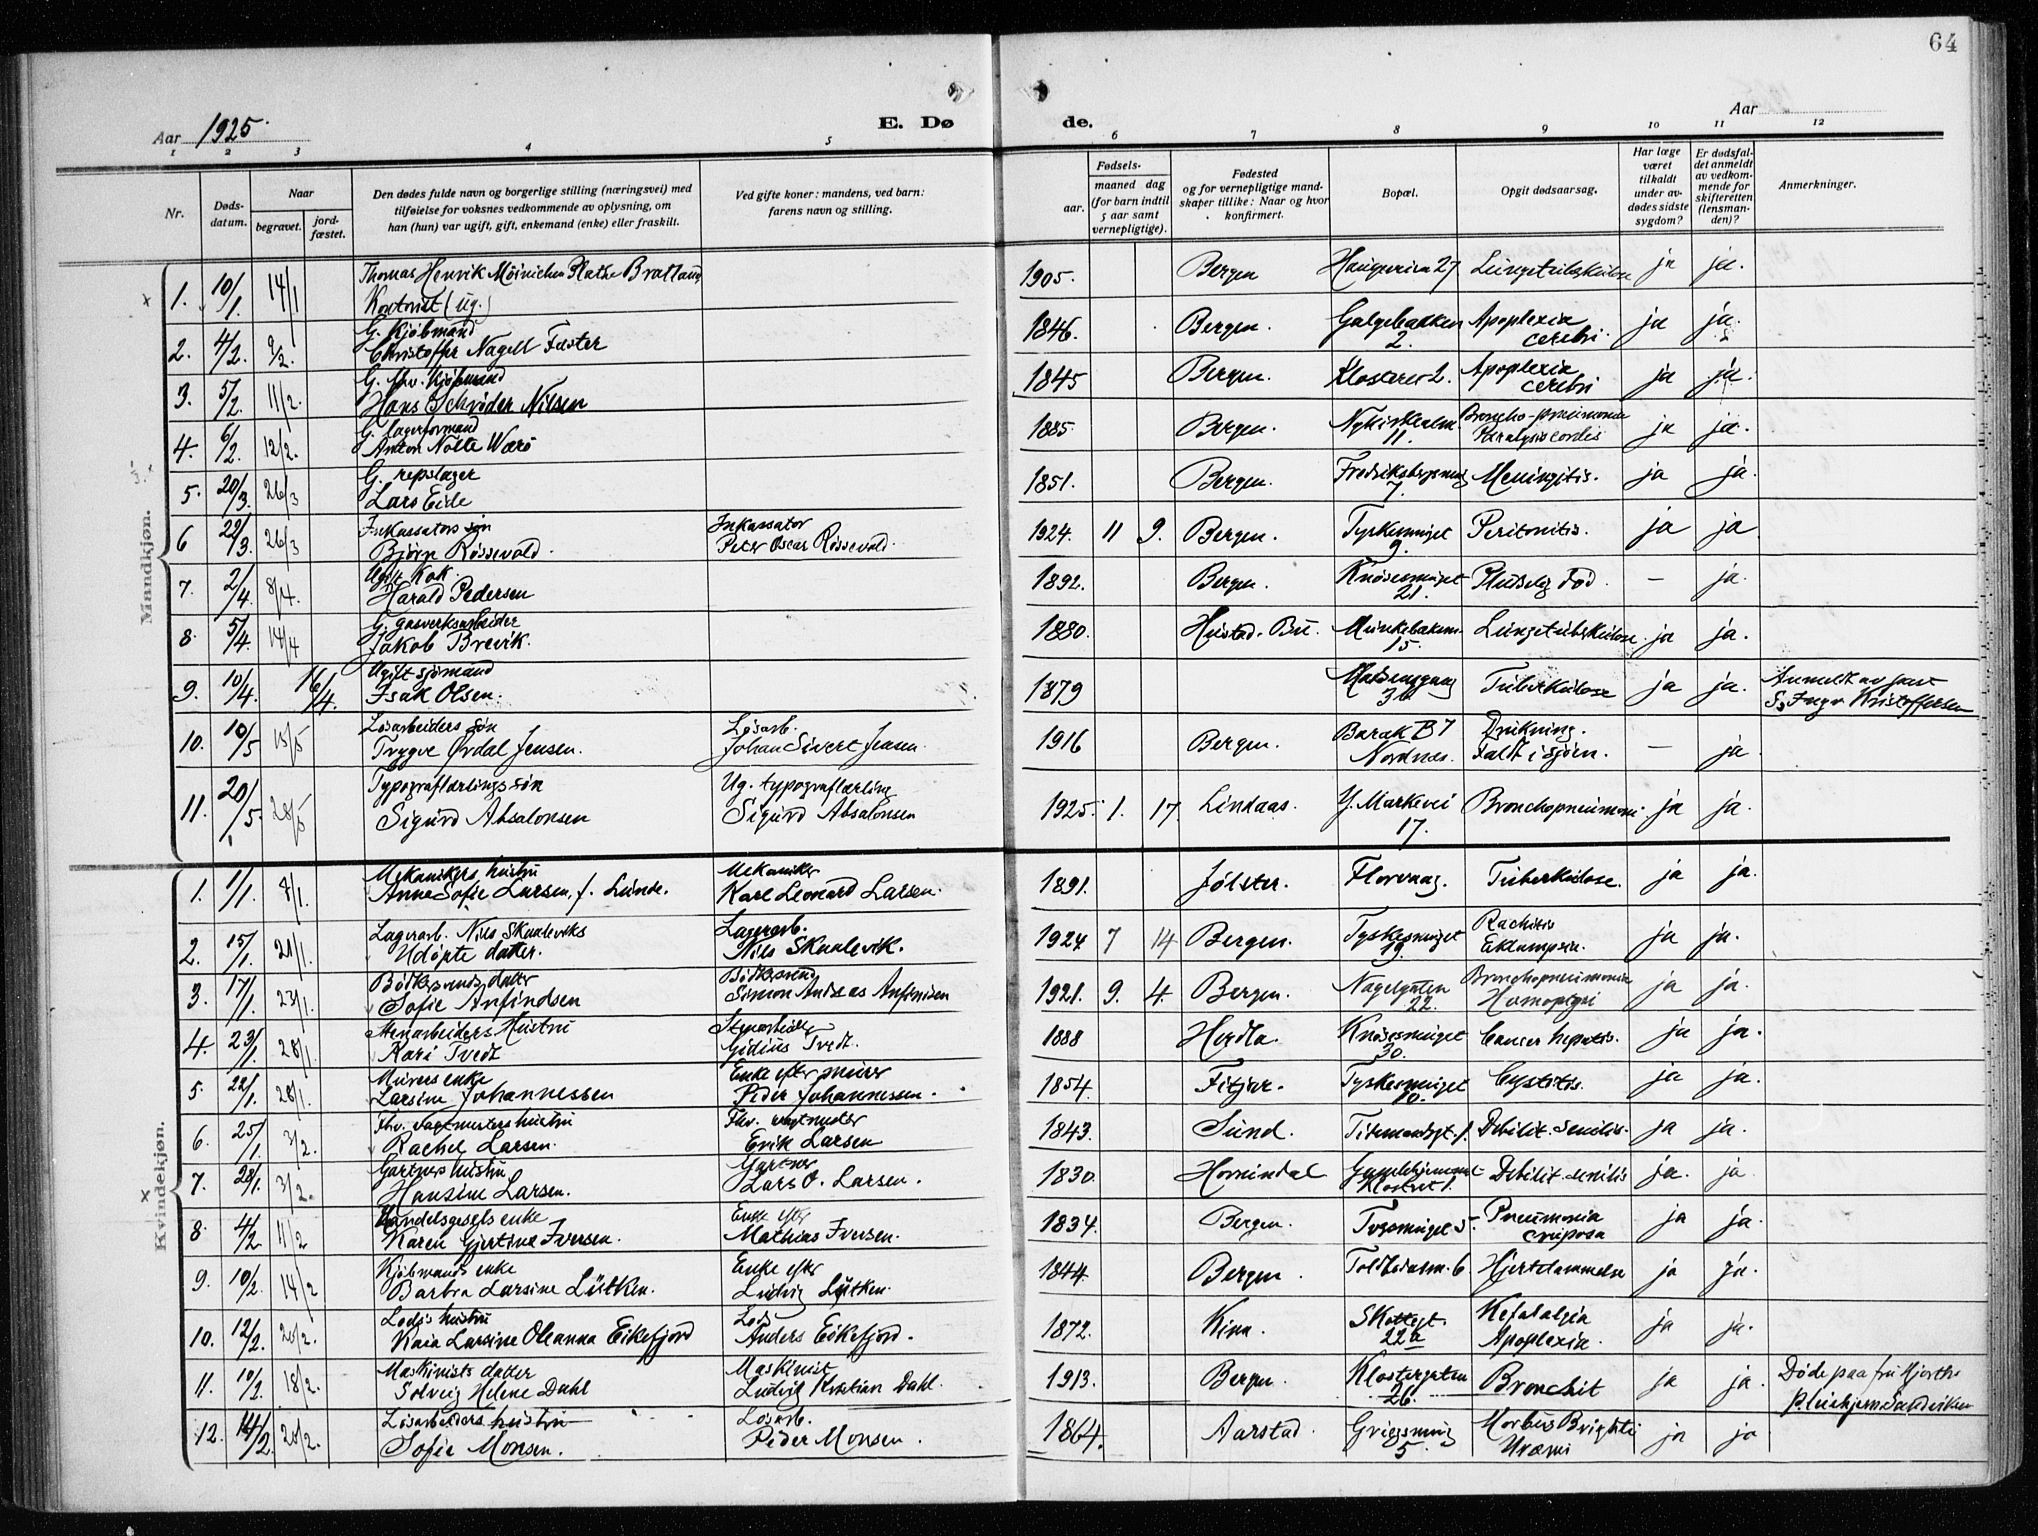 64
Aar 1925.
E. Dø
de.
Aar
1 2 3 4 5 6 7 8 9 10 11 12
Nr.
Døds-
datum.
Naar
begravet.
jord-
fæstet.
Den dødes fulde navn og borgerlige stilling (næringsvei) med
tilføielse for voksnes vedkommende av oplysning, om
han (hun) var ugift, gift, enkemand (enke) eller fraskilt.
Ved gifte koner: mandens, ved barn:
farens navn og stilling.
Fødsels-
aar.
maaned dag
(for barn indtil
5 aar samt
vernepligtige).
Fødested
og for vernepligtige mand-
skaper tillike: Naar og hvor
konfirmert.
Bopæl.
Opgit dødsaarsag.
Har læge
været
tilkaldt
under av-
dødes sidste
sygdom?
Er dødsfal-
det anmeldt
av vedkom-
mende for
skifteretten
(lensman-
den)?
Anmerkninger.
Mandkjøn.
1. 10/1 14/1 Thomas Henrik Bratland 1905. Bergen 27 Lungetuberkulose ja ja.
Kontorist (ug.)
2. 4/2. 9/2. G. Kjøbmand 1846. Bergen. Galgebakken Apoplexia ja ja.
Christoffer Nagell Faster 2. cerebri.
3. 5/2. 11/2. G. fhv. Kjøbmand 1845 Bergen. Klosteret 2. Apoplexia ja ja.
Hans Schrøder Nilsen cerebri
4. 6/2. 12/2. G. lagerformand 1885. Bergen. Broncho-pneumonia ja ja.
Anton Nolte Warö 11. Paralysis cordis
5. 20/3. 26/3 G. repslager 1851. Bergen. Meningitis. ja ja.
Lars Eide 7.
6 22/3. 26/3 Inkassators søn Inkassator 1924. 11 9. Bergen. Tyskesmuget Peritonitis. ja ja
Bjørn Rössevold. Peter Oscar Rössevold. 9.
7. 2/4. 8/4. Ugift Kok. 1892. Bergen. Knösesmuget Pludselig död. — ja.
Harald Pedersen 21.
8. 5/4. 14/4 G. gasverksarbeider 1880. Hustad. Bu. Munkebakken. Lungetuberkulose. ja ja.
Jakob Brevik. 15.
9. 10/4. 16/4. Ugift sjömand 1879 Tuberkulose ja ja. Anmeldt av
Isak Olsen. 36 Kristoffersen
10. 10/5 15/5 Løsarbeiders søn Løsarb. 1916 Bergen. Barak B 7 Drukning. — ja
Trygve Ørdal Jensen. Johan Sivert Jensen. Nordnæs. Faldt i sjøen.
11. 20/5. 28/5 Typograflærlings søn Ug. typograflærling 1925. 1. 17. Lindaas. Y. Markevei Bronchopneumoni. ja ja.
Sigurd Absalonsen Sigurd Absalonsen 17.
Kvindekjøn.
1. 1/1. 8/1. Mekanikers hustru Mekaniker 1891. Jølster. Florvaag. Tuberkulose. ja ja.
Anne Sofie Larsen, f. Lunde. Karl Leonard Larsen.
2. 15/1. 21/1. Lagerarb. Nils Skaaleviks Lagerarb. 1924 7 14 Bergen. Tyskesmuget Rachitis ja ja.
Udöpte datter. Nils Skaalevik. 19. Eklampsia.
3. 17/1. 23/1. datter 1921. 9. 4. Bergen. Nagelgaten Bronchopneumonia ja ja.
Sofie Anfindsen Simon Andreas Anfindsen 22.
4. 23/1. 28/1. Stenarbeiders Hustru Stenarbeider 1888 Herdla. Knösesmuget Cancer hepatis. ja ja.
Kari Tvedt Gidius Tvedt. 30.
5. 22/1. 28/1. Murers enke Enke efter murer 1854. Fitjar. Tyskesmuget Cystitis. ja ja.
Larsine Johannessen Peder Johannessen. 10.
6. 25/1. 3/2. Fhv. hustru Fhv. 1843. Sund. Debilit. senilis. ja ja.
Rachel Larsen. Erik Larsen
7. 28/1. 3/2. Gartners hustru Gartner 1830. Hornindal Debilit. senilis ja. ja
Hansine Larsen. Lars O. Larsen. Klostret 1.
8. 4/2. 11/2 Handelsgesels enke Enke efter 1834. Bergen. 5. Pneumonia ja ja.
Karen Gjertine Iversen. Mathias Iversen. cruposa
9. 10/2. 14/2 Kjöbmands enke Enke efter 1844. Bergen. 6 Hjertelammelse ja ja.
Barbra Larsine Lütken. Ludvig Lütken.
10. 12/2. 20/2. Lods hustru Lods 1872. Kinn. Skottegt. Kefalalgia ja ja.
Kaia Larsine Oleanna Eikefjord Anders Eikefjord. 22a Apoplexia.
11. 10/2. 18/2. Maskinists datter Maskinist 1913. Bergen Klostergaten Bronchit ja ja. Døde paa fru Hjorths
Solveig Helene Dahl Ludvig Kristian Dahl. 26. Pleiehjem Sandviken
12. 14/2. 20/2. Løsarbeiders hustru Løsarb. 1864. Aarstad. Griegsmug Morbus Brighti ja ja
Sofie Monsen. Peder Monsen. 5. Uræmi